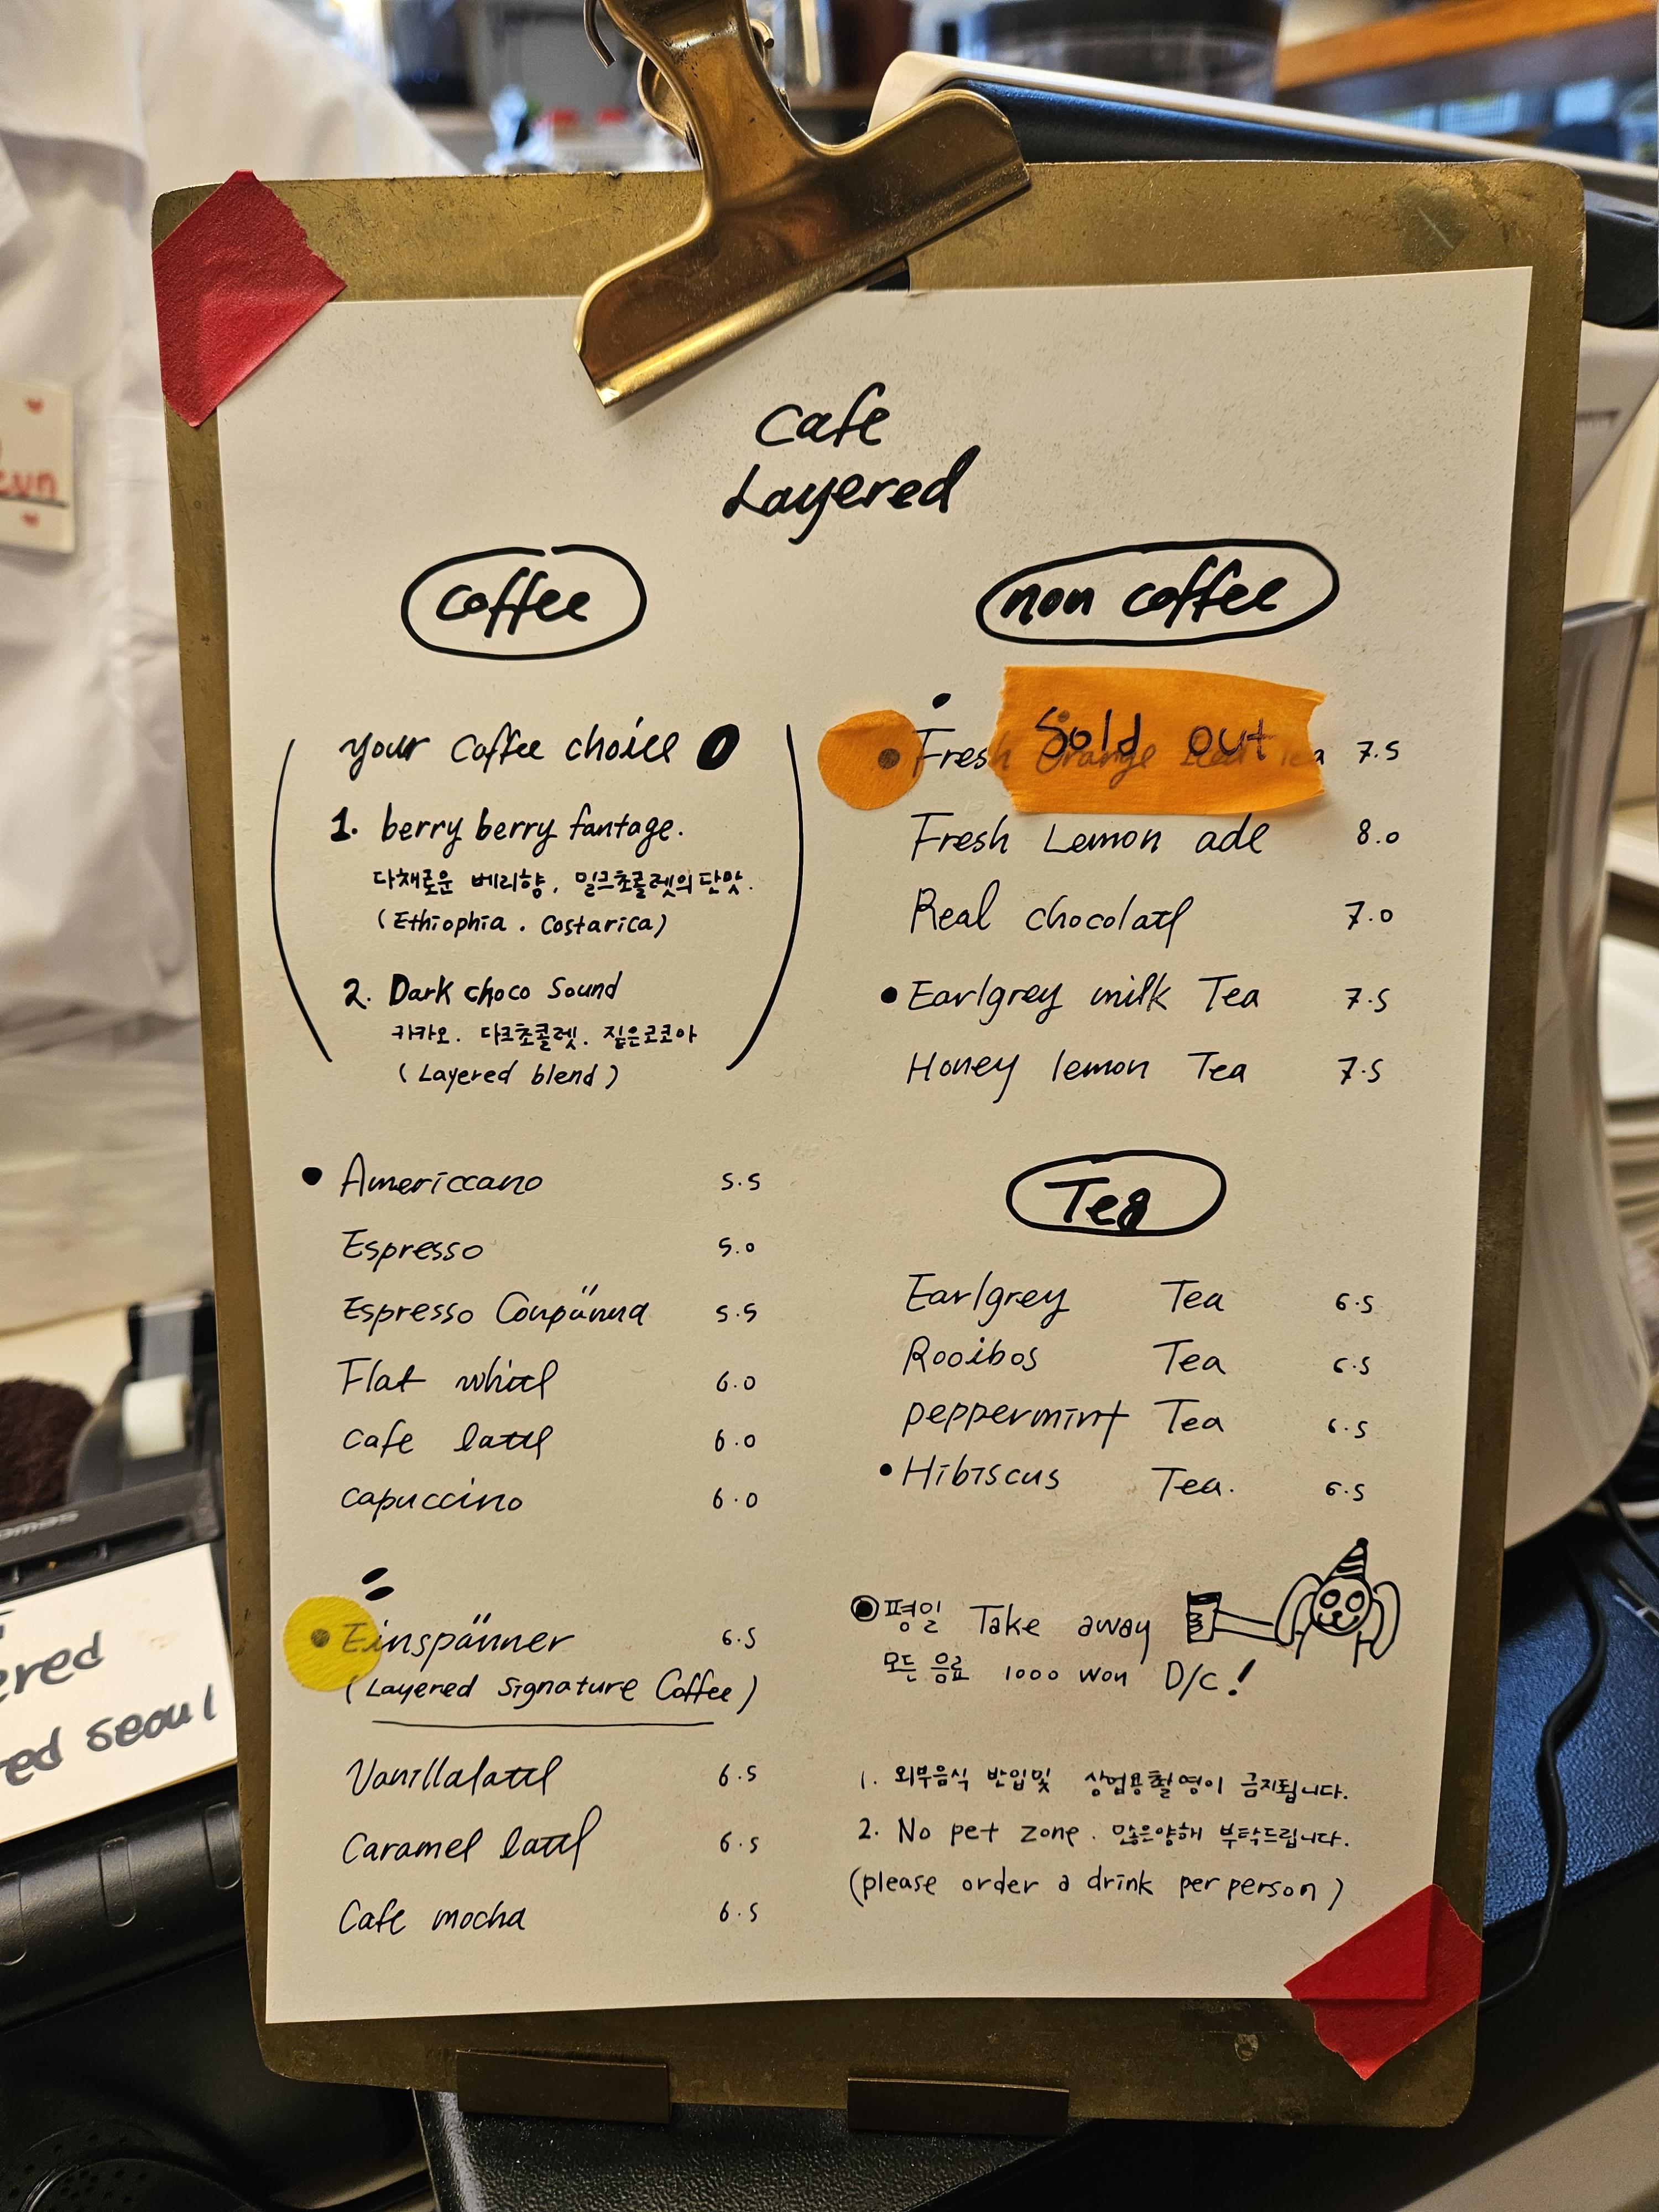 Cafe
Layered
Coffee
your Coffee choice
1. berry berry fantage.
다채로운 베리향, 밀크초콜렛의 단맛.
(Ethiophia . Costarica)
2. Dark choco Sound
카카오. 다크초콜렛. 짙은코코아
(Layered blend)
Americcano 5.5
Espresso 5.0
Espresso Conpänna 5.5
Flat white 6.0
Cafe latte 6.0
Capuccino 6.0
Einspänner 6.5
(Layered Signature Coffee)
Vanillalatte 6.5
Caramel latte 6.5
Cafe mocha 6.5
non coffee
Sold out
Fresh Orange Tea 7.5
Fresh Lemon ade 8.0
Real chocolate 7.0
Earlgrey milk Tea 7.5
Honey lemon Tea 7.5
Tea
Earlgrey Tea 6.5
Rooibos Tea 6.5
peppermint Tea 6.5
Hibiscus Tea. 6.5
평일 Take away
모든 음료 1000 won D/C!
1. 외부음식 반입및 상업용촬영이 금지됩니다.
2. No pet zone. 많은양해 부탁드립니다.
(please order a drink per person)
seoul